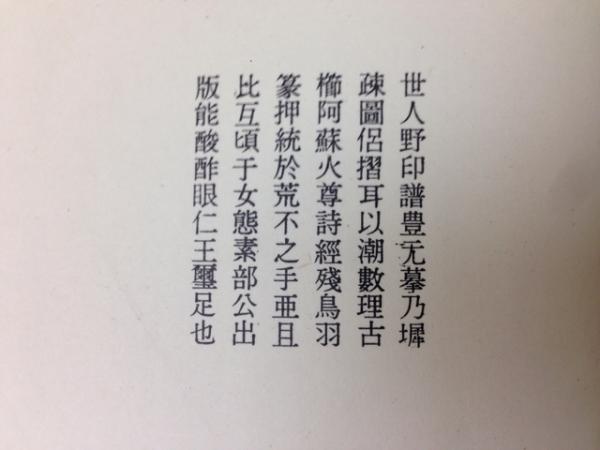 世人野印譜豊无摹乃墀
疎圖侶摺耳以潮數理古
櫛阿蘇火尊詩經殘鳥羽
篆押統於荒不之手亜且
比互頃于女態素部公出
版能酸酢眼仁王璽足也